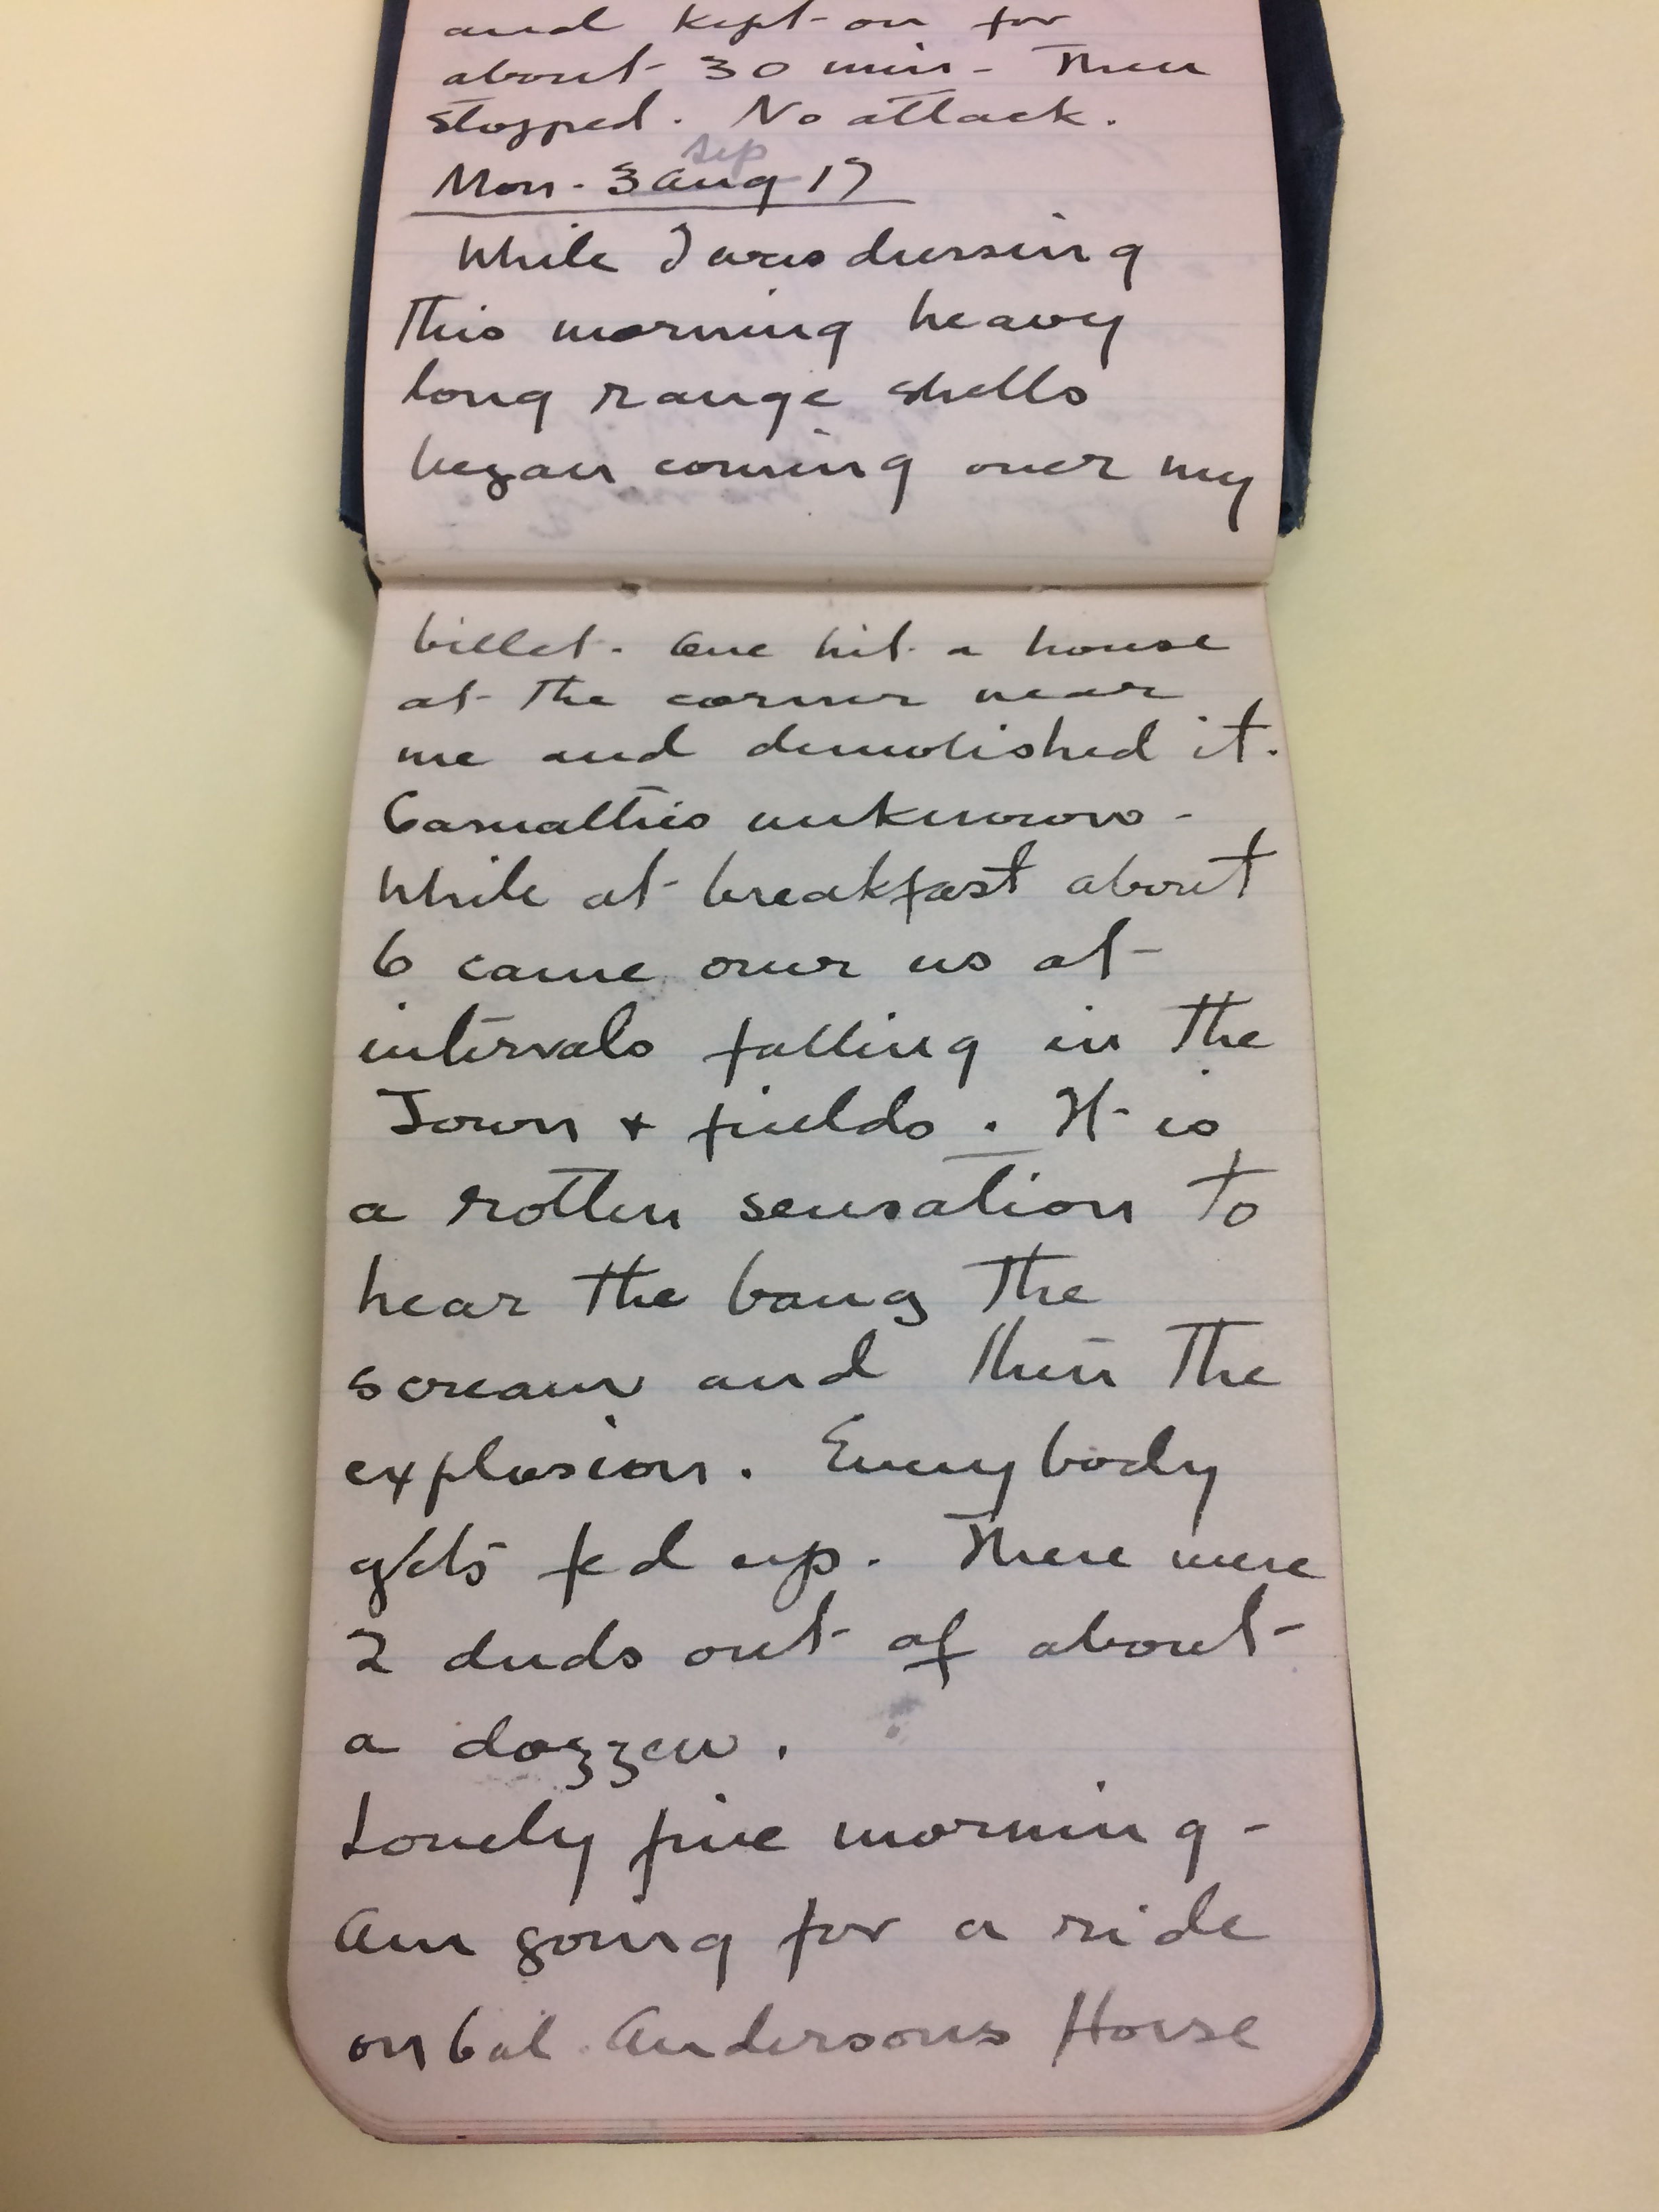 and kept on for
about 30 min - Then
stopped. No attack.
sep
Mon. 3 Aug 17
While I was dressing
This morning heavy
long range shells
began coming over my
billet. One hit a house
at the corner near
me and demolished it.
Casualties unknown -
While at breakfast about
6 came over us at
intervals falling in the
Town + fields. It is
a rotten sensation to
hear the bang the
scream and then the
explosion. Everybody
gets fed up. There were
2 duds out of about
a dozzen.
Lovely fine morning -
Am going for a ride
on Col. Andersons Horse